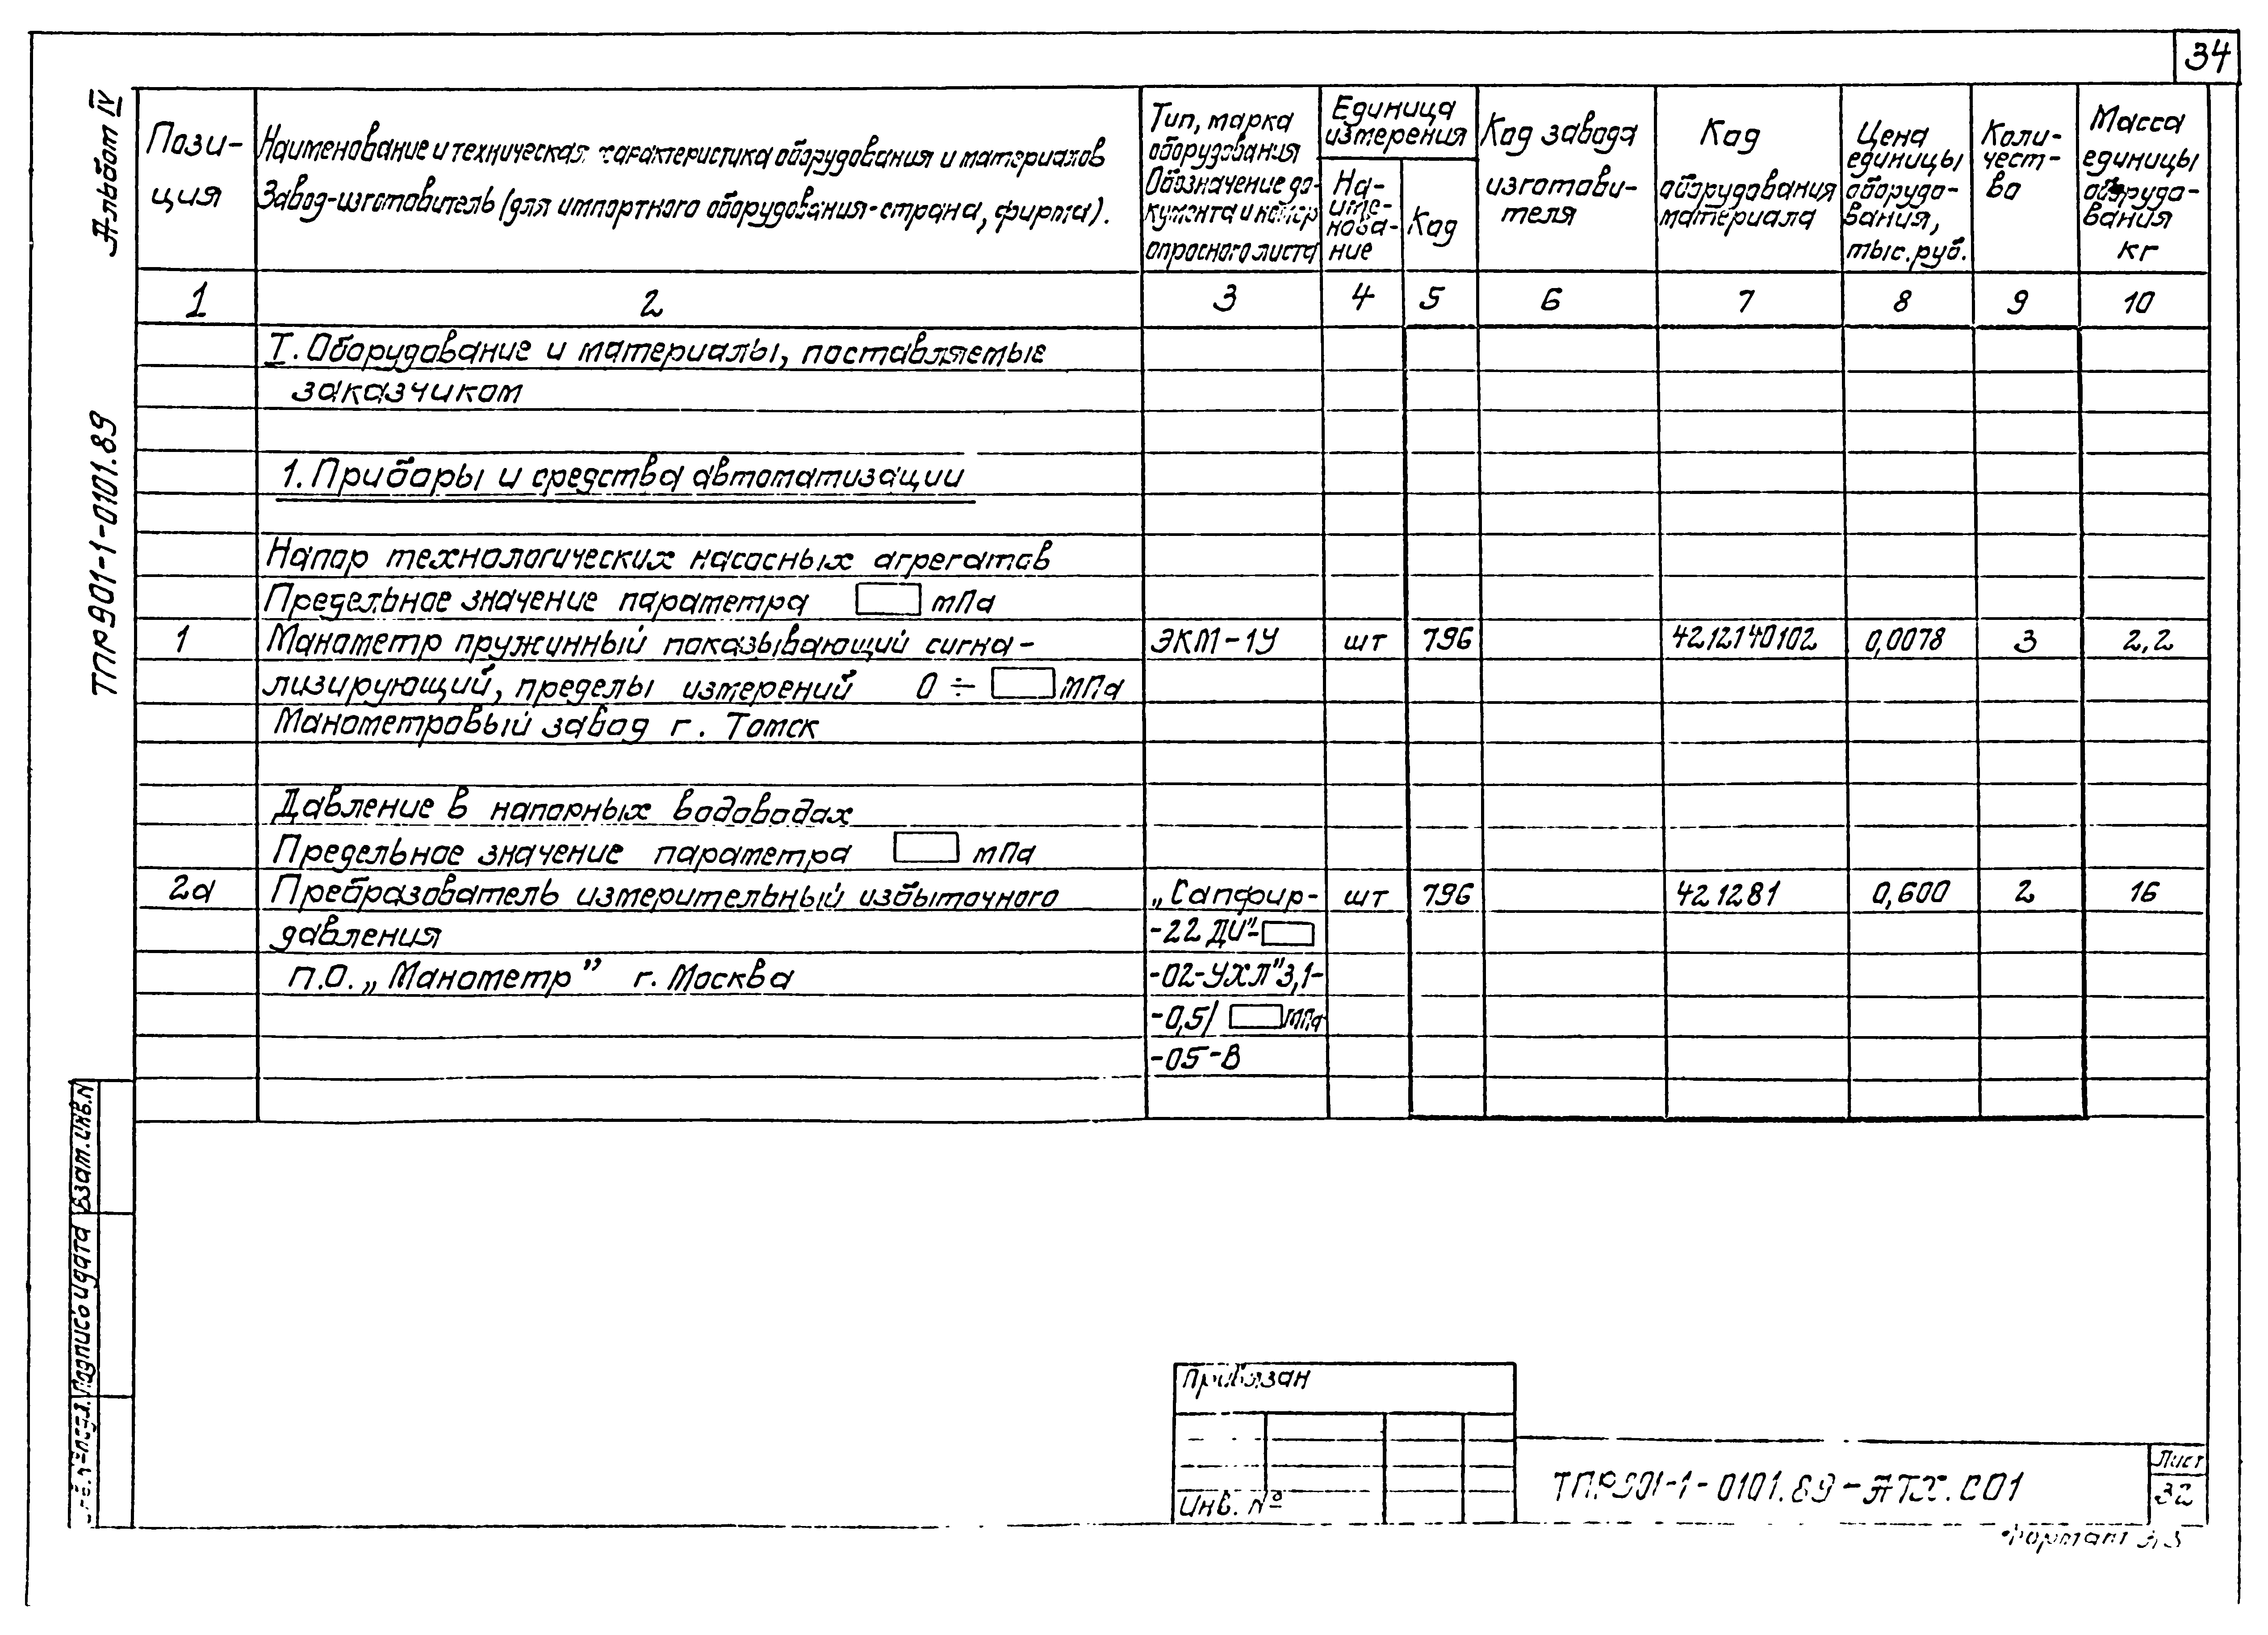 34
Альбом IV
ТПР 901-1-0101.89
Пози-
ция
Наименование и техническая характеристика оборудования и материалов
Завод-изготовитель (для импортного оборудования-страна, фирма).
Тип, марка
оборудования
Обозначение до-
кумента и номер
опросного листа
Единица
измерения
На-
име-
нова-
ние
Код
Код завода
изготови-
теля
Код
оборудования
материала
Цена
единицы
оборудо-
вания,
тыс. руб.
Коли-
чест-
во
Масса
единицы
оборудо-
вания
кг
1 2 3 4 5 6 7 8 9 10
I. Оборудование и материалы, поставляемые
заказчиком
1. Приборы и средства автоматизации
Напор технологических насосных агрегатов
Предельное значение параметра мПа
1 Манометр пружинный показывающий сигна- ЭКМ-1У шт 796 4212140102 0,0078 3 2,2
лизирующий, пределы измерений 0 ÷ мПа
Манометровый завод г. Томск
Давление в напорных водоводах
Предельное значение параметра мПа
2а Пребразователь измерительный избыточного „Сапфир- шт 796 421281 0,600 2 16
давления -22 ДИ"-
п.о. „Манометр” г. Москва -02-УХЛ"3,1-
-0,5/ мПа
-05-В
Взам. инв. N
Подпись и дата
Привязан
Инв. №
ТПР901-1-0101.89-АТХ.СО1
Лист
32
Формат А3